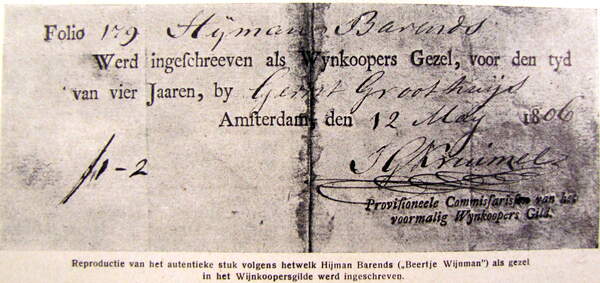 Folio 179 Hijman Barends
Werd ingeschreeven als Wynkoopers Gezel, voor den tyd
van vier Jaaren, by Gerrit Groothuijs
Amsterdam, den 12 May 1806
ƒ1-2
Provisioneele Commissarissen van het
voormalig Wynkoopers Gild.
Reproductie van het autentieke stuk volgens hetwelk Hijman Barends („Beertje Wijnman") als gezel
in het Wijnkoopersgilde werd ingeschreven.